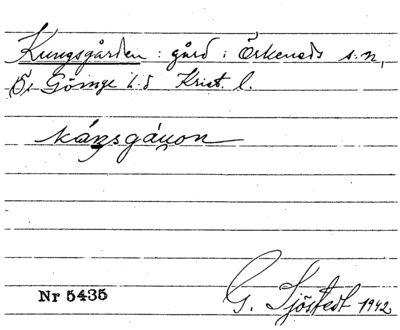 Kungsgården : gård i Örkeneds s:n,
Ö. Göinge h:d Krist. l.
káŋsgáŋon
Nr 5435
G. Sjöstedt 1942